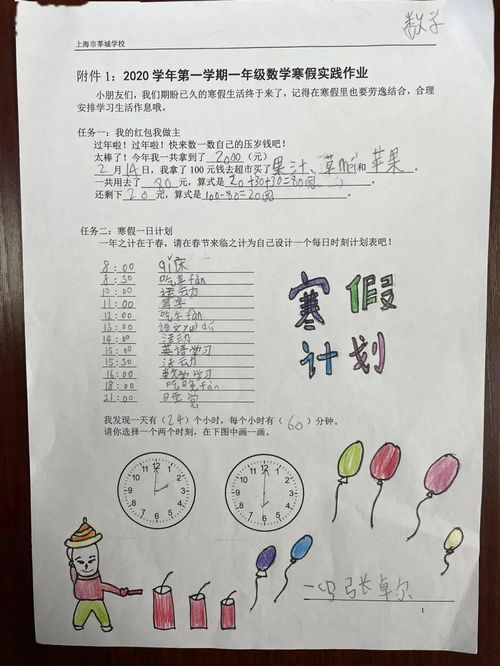 数学
上海市莘城学校
附件1：2020学年第一学期一年级数学寒假实践作业
小朋友们，我们期盼已久的寒假生活终于来了，记得在寒假里也要劳逸结合，合理
安排学习生活作息哦。
任务一：我的红包我做主
过年啦！过年啦！快来数一数自己的压岁钱吧！
太棒了！今年我一共拿到了 2000 (元)
2月14日，我拿了100元钱去超市买了果汁、草mei和苹果。
一共用去了 80 元，算式是 20+30+30=80元
还剩下 20 元，算式是 100-80=20元
任务二：寒假一日计划
一年之计在于春，请在春节来临之计为自己设计一个每日时刻计划表吧！
8:00 qǐ床
8:30 吃早fàn
10:00 活动
11:00
12:00 吃午fàn
13:00 语文yuè dú
14:00 活动
15:00 英语学习
15:50 活动
16:00 数学学习
18:00 吃晚fàn
21:00 睡觉
寒假
计划
我发现一天有（24）个小时，每个小时有（60）分钟。
请你选择一个两个时刻，在下图中画一画。
12 1 2 3 4 5 6 7 8 9 10 11
12 1 2 3 4 5 6 7 8 9 10 11
一(4) 张卓尔
1